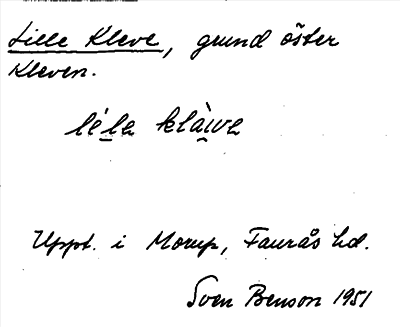 Lille Kleve, grund öster
Kleven.
léla klàwe
Uppt. i Morup, Faurås hd.
Sven Benson 1951